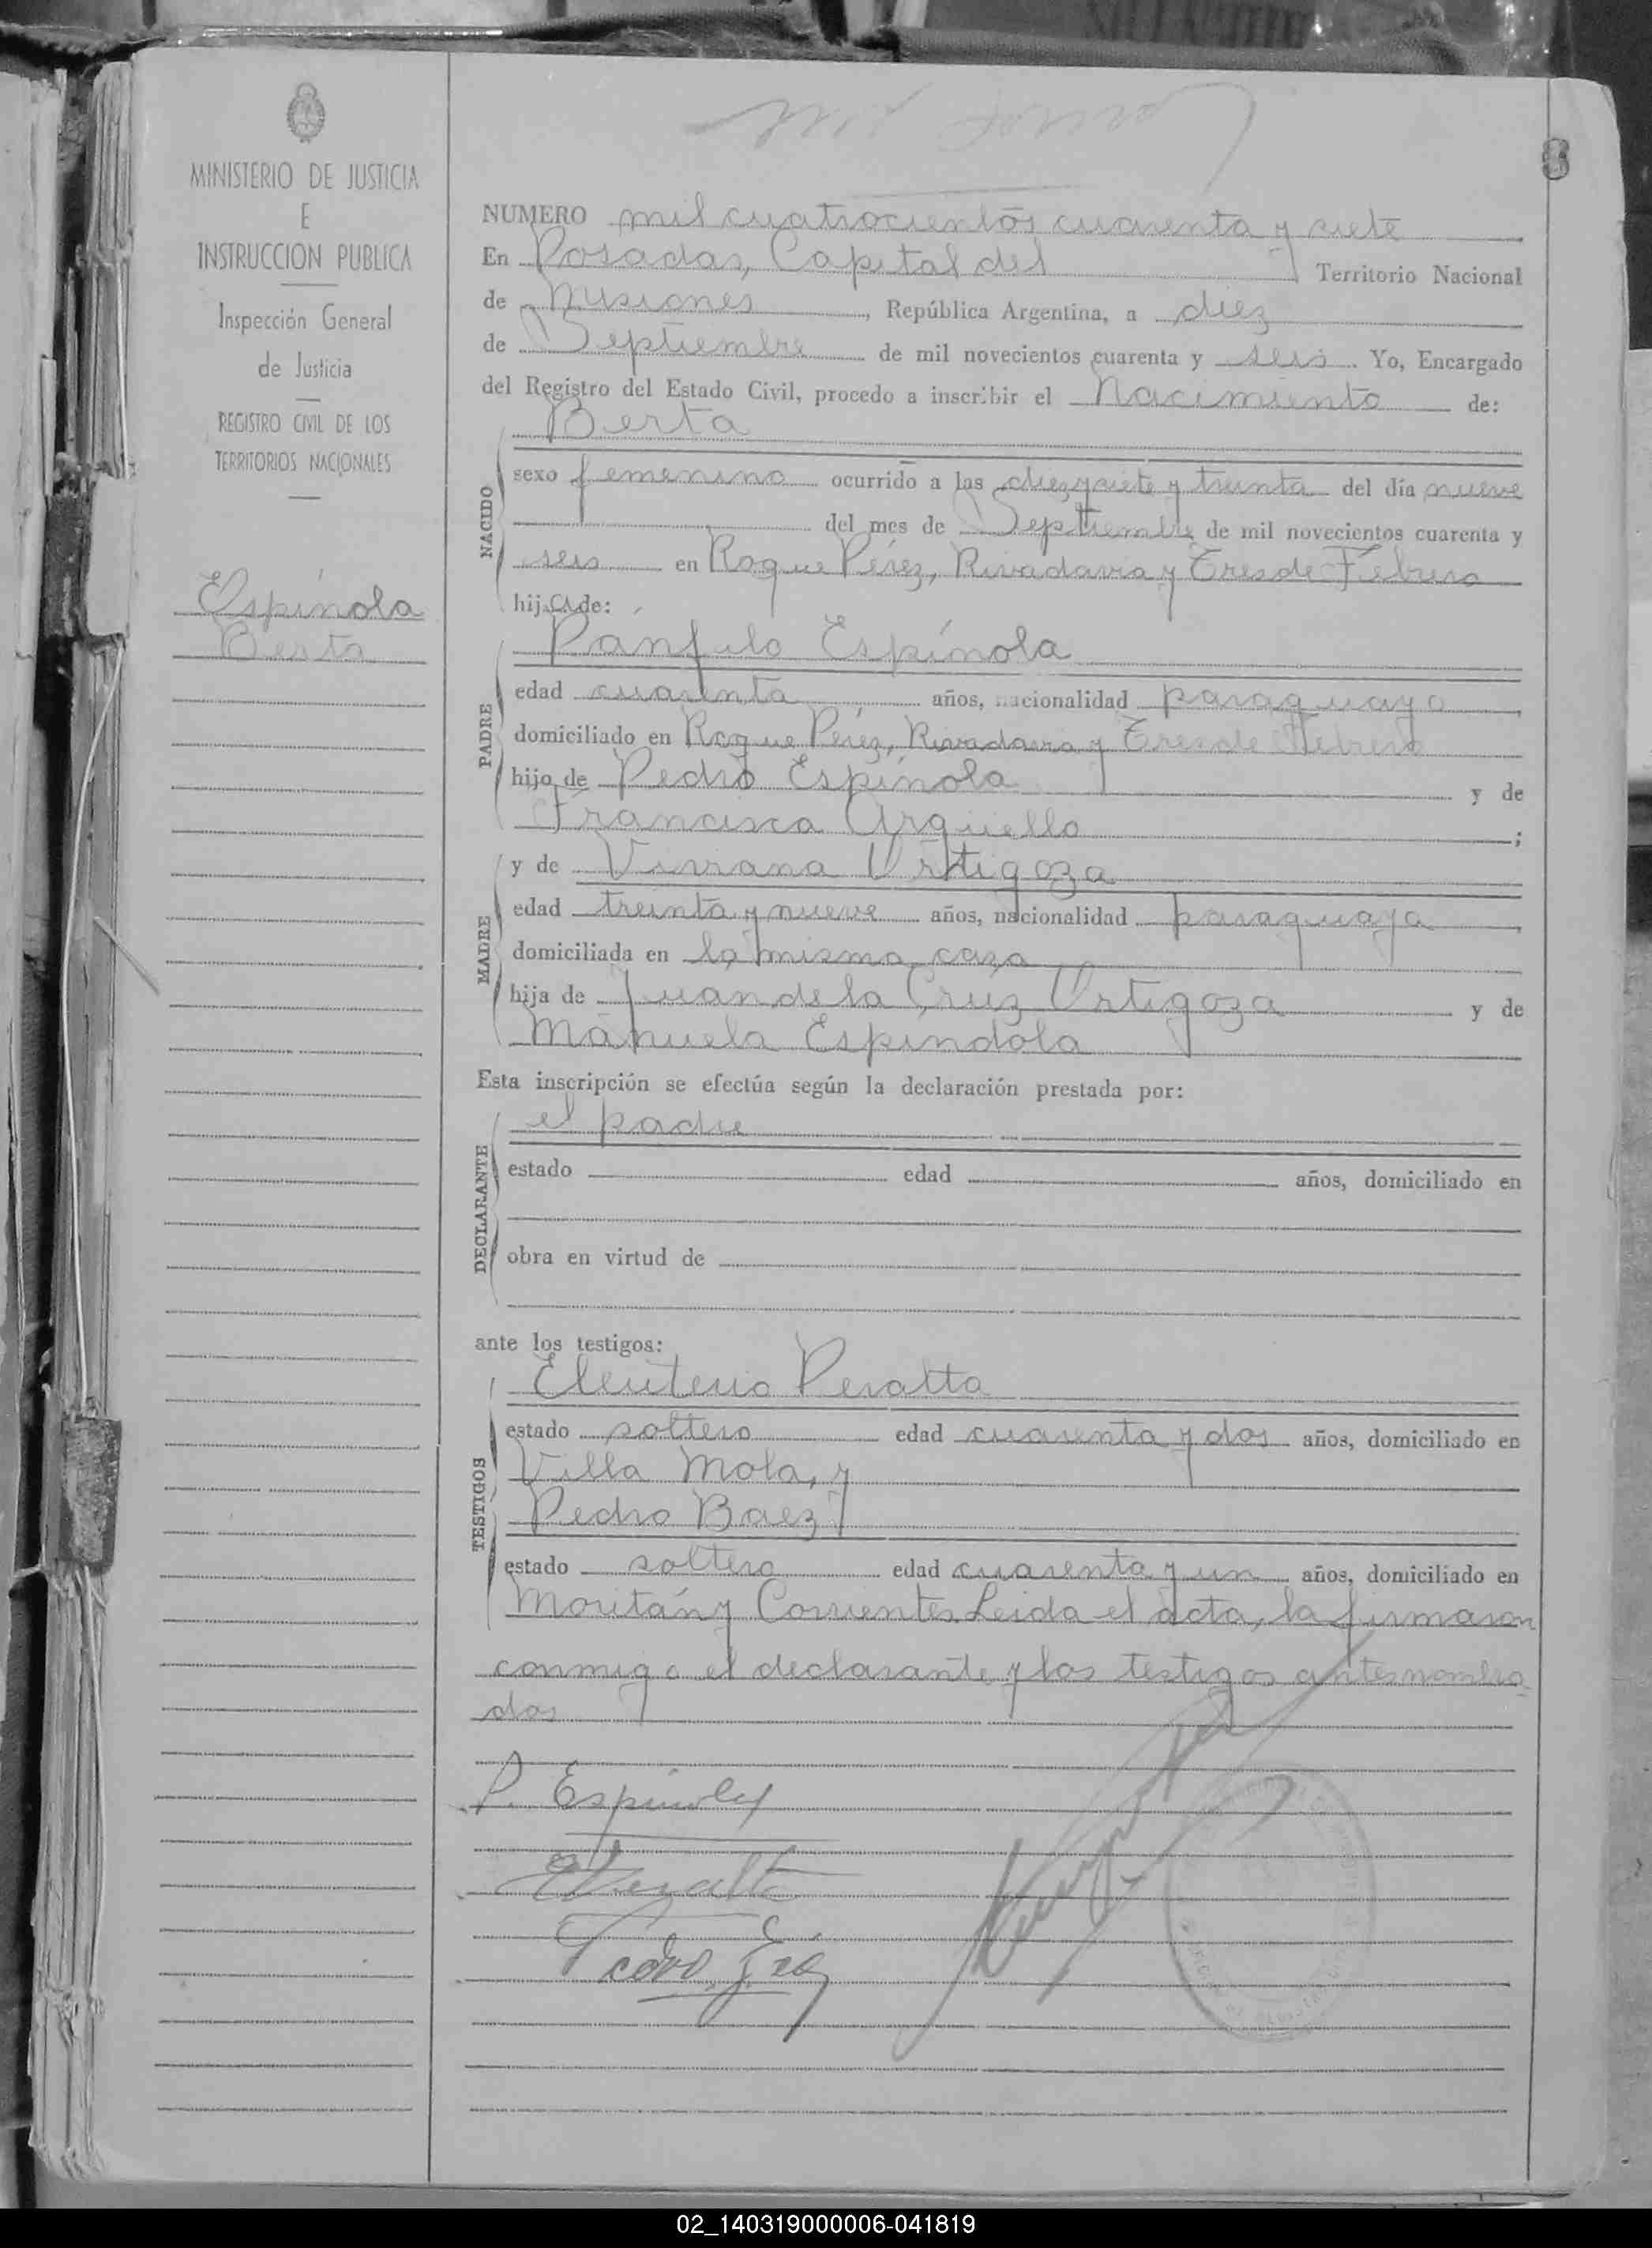 MINISTERIO DE JUSTICIA
E
INSTRUCCION PUBLICA
Inspección General
de Justicia
REGISTRO CIVIL DE LOS
TERRITORIOS NACIONALES
Espínola
Berta
8
NUMERO mil cuatrocientos cuarenta y siete
En Posadas, Capital del Territorio Nacional
de Misiones, República Argentina, a diez
de Septiembre de mil novecientos cuarenta y seis. Yo, Encargado
del Registro del Estado Civil, procedo a inscribir el Nacimiento de:
NACIDO
Berta
sexo femenino ocurrido a las diez y siete y treinta del día nueve
del mes de Septiembre de mil novecientos cuarenta y
seis en Roque Pérez, Rivadavia y Tres de Febrero
hija de:
PADRE
Pánfilo Espínola
edad cuarenta años, nacionalidad paraguaya
domiciliado en Roque Pérez, Rivadavia y Tres de Febrero
hijo de Pedro Espínola y de
Francisca Argüello;
MADRE
y de Viviana Ortigoza
edad treinta y nueve años, nacionalidad paraguaya
domiciliada en la misma casa
hija de Juan de la Cruz Ortigoza y de
Manuela Espíndola
Esta inscripción se efectúa según la declaración prestada por:
DECLARANTE
el padre
estado edad años, domiciliado en
obra en virtud de
ante los testigos:
TESTIGOS
Eleuterio Peralta
estado soltero edad cuarenta y dos años, domiciliado en
Villa Mola, y
Pedro Baez
estado soltero edad cuarenta y un años, domiciliado en
Moritán y Corrientes. Leida el acta, la firmaron
conmigo el declarante y los testigos antes nombra
dos
P. Espinola
EPeralta
Pedro
02_140319000006-041819